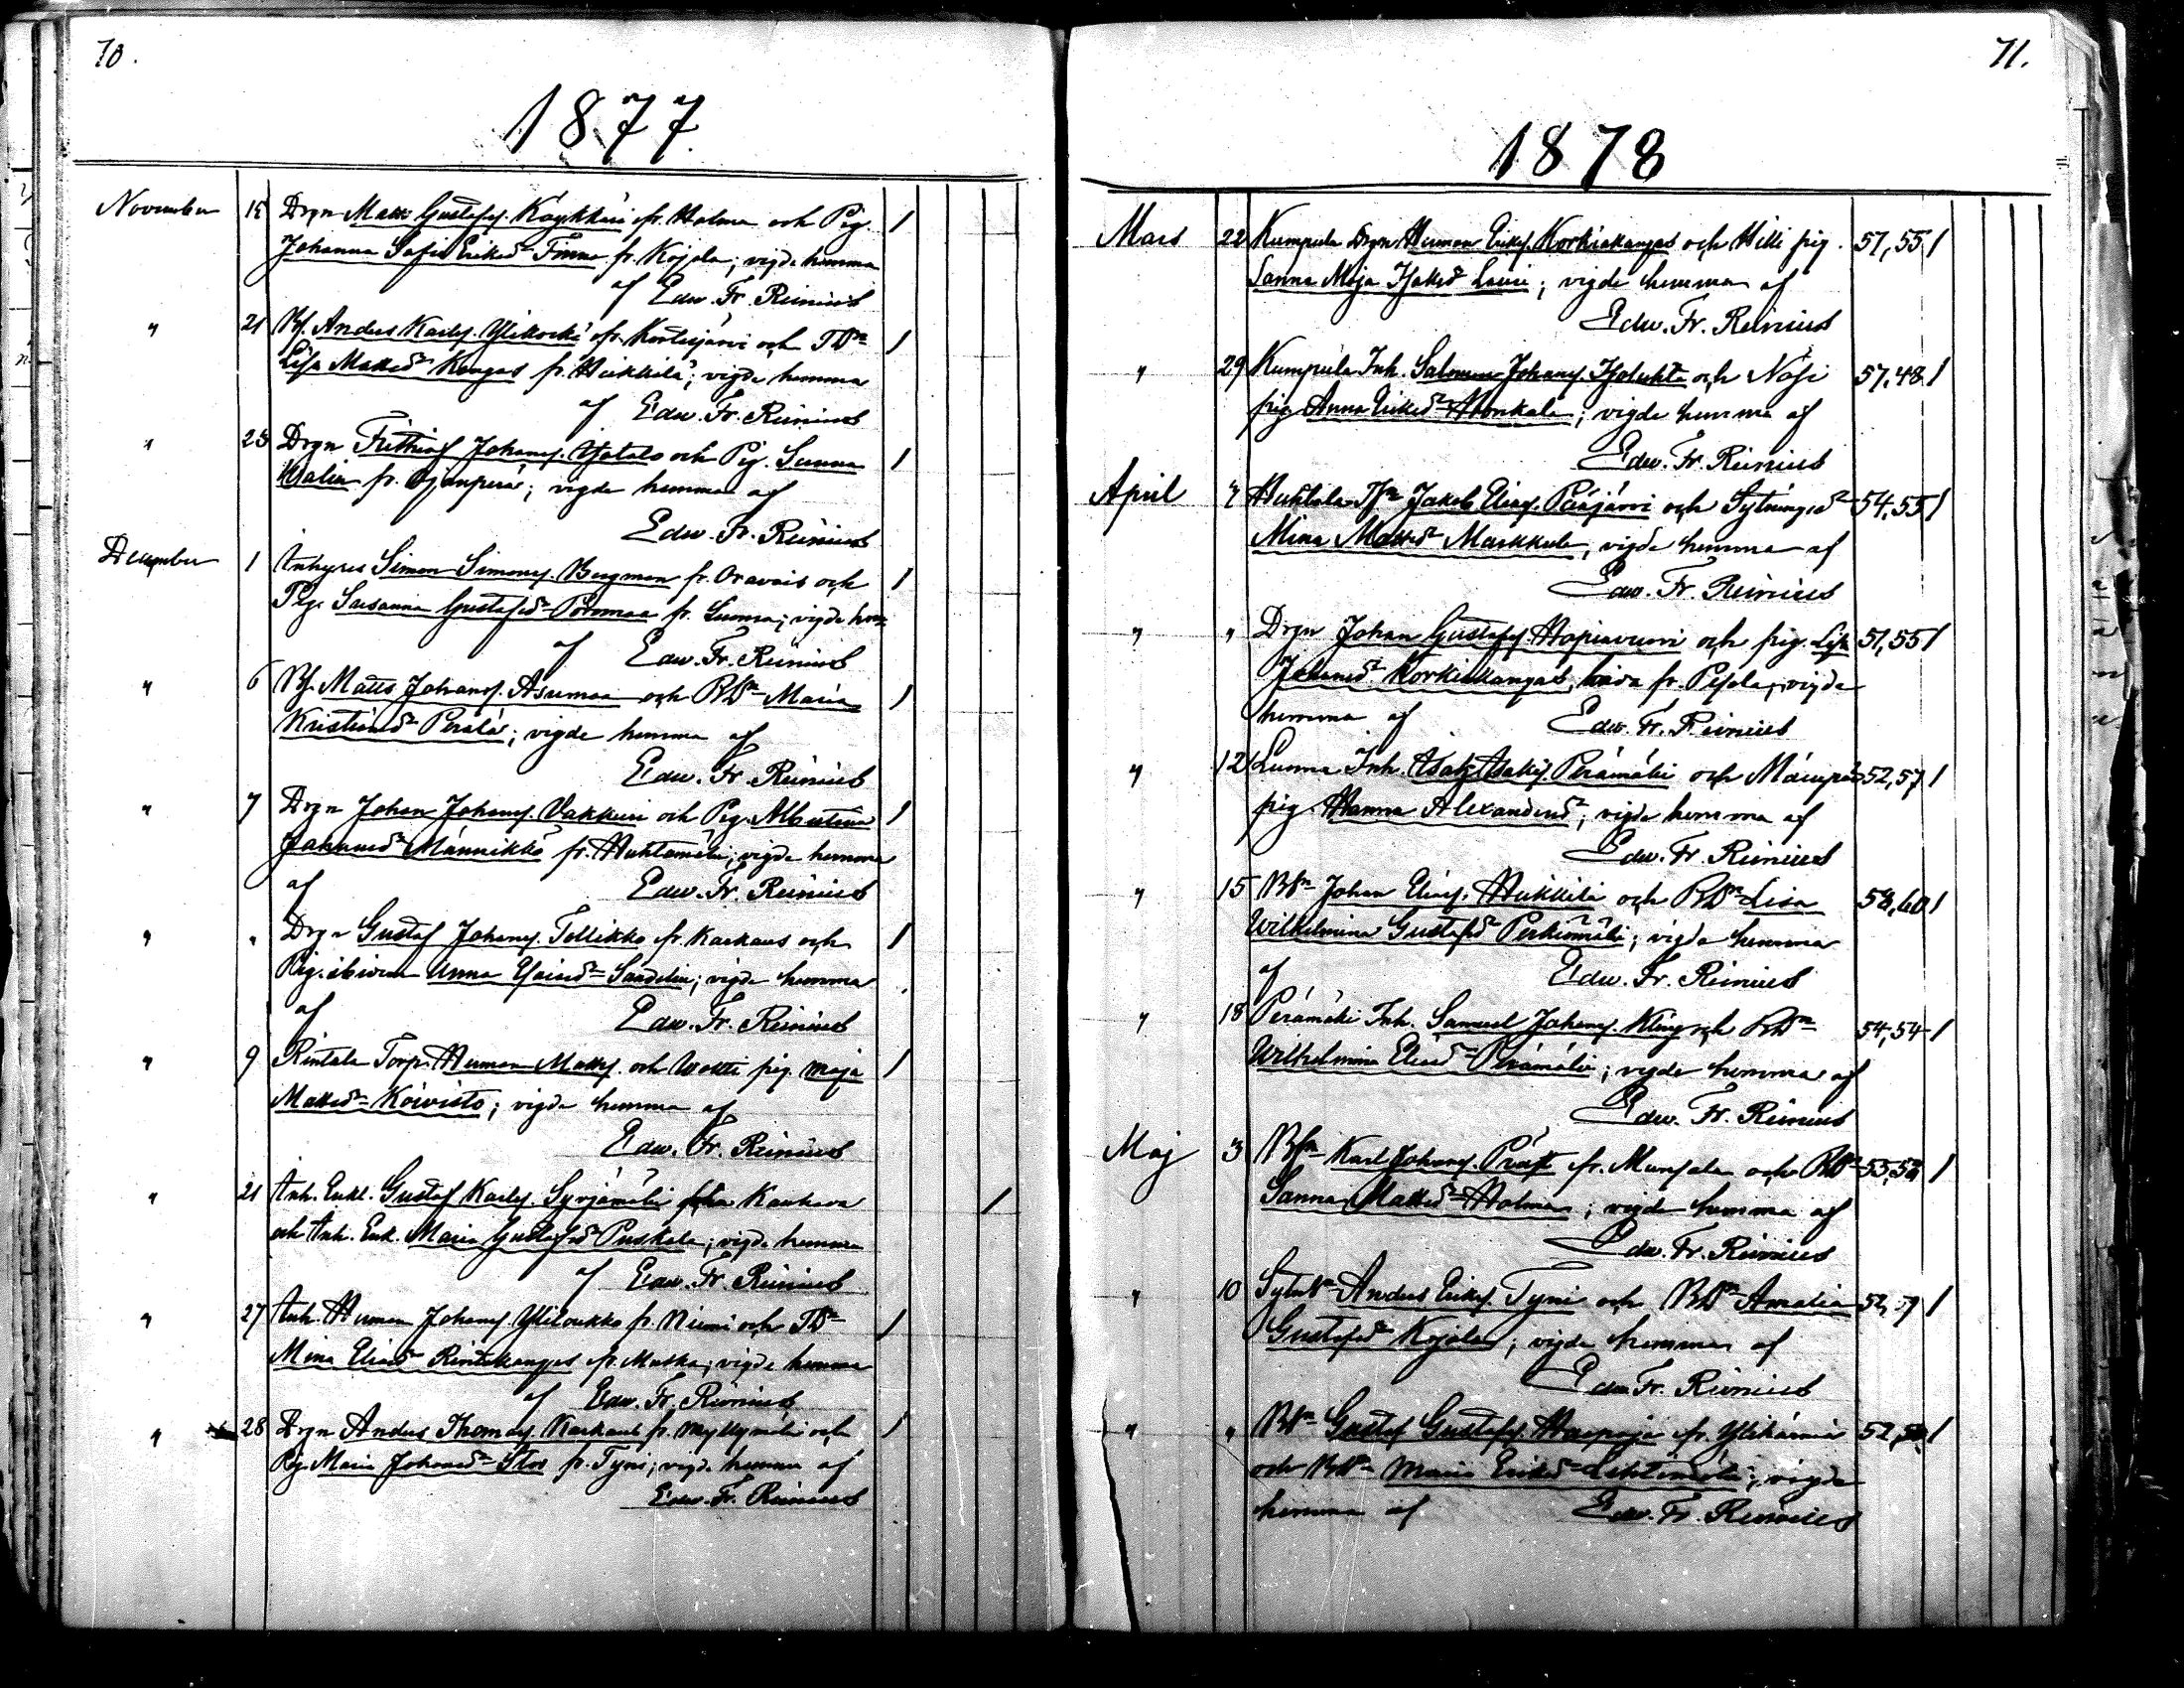 70.
1877.
November 15 Drgn Matts Gustafss. Käykkäri fr. Holma och Pig. 1
Johanna Sofia Eriksdr Finne fr. Kojola; vigde hemma
af Edw. Fr. Reinius
" 21 Bs. Anders Karlss. Ylikoski fr. Kortesjärvi och TDr 1
Lisa Mattsdr Kangas fr. Heikkilä; vigde hemma
af Edw. Fr. Reinius
" 23 Drgn Frithiof Johanss. och Pig. Sanna 1
fr. Ojanperä; vigde hemma af
Edw. Fr. Reinius
December 1 Inhyses Simon Simonss. Bergman fr. Oravais och 1
Pig. Susanna Gustafsdr Pörnmaa fr. Luoma; vigde hem
af Edw. Fr. Reinius
" 6 Bs. Matts Johanss. Asumaa och BDr Maria 1
Perälä; vigde hemma af
Edw. Fr. Reinius
" 7 Drgn Johan Johanss. Vakkuri och Pig. Albertina 1
Johansdr Männikkö fr. Huhtamäki; vigde hemma
af Edw. Fr. Reinius
" " Drgn Gustaf Johanss. Tollikko fr. Karhaus och 1
Pig. Anna Esaiedr Sandelin; vigde hemma
af Edw. Fr. Reinius
" 9 Rintala Torp. Herman Mattss. och Woltti pig. Maja 1
Mattsdr Koivisto; vigde hemma af
Edw. Fr. Reinius
" 21 Inh. Enkl. Gustaf Karlss. Syrjämäki från Kauhava 1
och Inh. Enk. Maria Gustafsdr Puskala; vigde hemma
af Edw. Fr. Reinius
" 27 Inh. Herman Johanss. Yliloukko fr. Niemi och TDr 1
Mina Eliedr Rintakangas fr. Matka; vigde hemma
af Edw. Fr. Reinius
" 28 Drgn Anders Thomass. Karhaus fr. Myllymäki och 1
Pig. Maria Johansdr Stor fr. Tyni; vigde hemma af
Edw. Fr. Reinius
71.
1878
Mars 22 Kumpula Drgn Herman Erikss. Korkiakangas och Willi pig. 57,55 1
Sanna Maja Isaksdr Lauri; vigde hemma af
Edw. Fr. Reinius
" 29 Kumpula Inh. Salomon Johanss. Isoluhta och Näsi 57,48 1
pig Anna Eriksdr Honkala; vigde hemma af
Edw. Fr. Reinius
April 4 Huhtala Jakob Eliass. Pääjärvi och Sytningsdr 54,55 1
Mina Mattsdr Markkula, vigde hemma af
Edw. Fr. Reinius
" " Drgn Johan Gustafss. Hapiavuori och pig. Lisa 51,55 1
Johansdr Korkiakangas, båda fr. Pesola, vigde
hemma af Edw. Fr. Reinius
" 12 Luoma Inh. Isak Isakss. Perämäki och 52,57 1
pig. Hanna Alexandersdr; vigde hemma af
Edw. Fr. Reinius
" 15 Johan Eliass. Heikkilä och BDr Lisa 58,60 1
Wilhelmina Gustafsdr Perkiömäki; vigde hemma
af Edw. Fr. Reinius
" 18 Perämäki Inh. Samuel Johanss. Kling och BDr 54,54 1
Wilhelmina Eliedr Perämäki; vigde hemma af
Edw. Fr. Reinius
Maj 3 Karl Johanss. Präst fr. Munsala och BDr 55,53 1
Sanna Mattsdr Holma; vigde hemma af
Edw. Fr. Reinius
" 10 Anders Erikss. Tyni och BDr Amalia 1
Gustafsdr Kojola; vigde hemma af
Edw. Fr. Reinius
" " Gustaf Gustafss. Haapoja fr. Ylihärmä 1
och BDr Maria Eriksdr Lehtimäki; vigde
hemma af Edw. Fr. Reinius